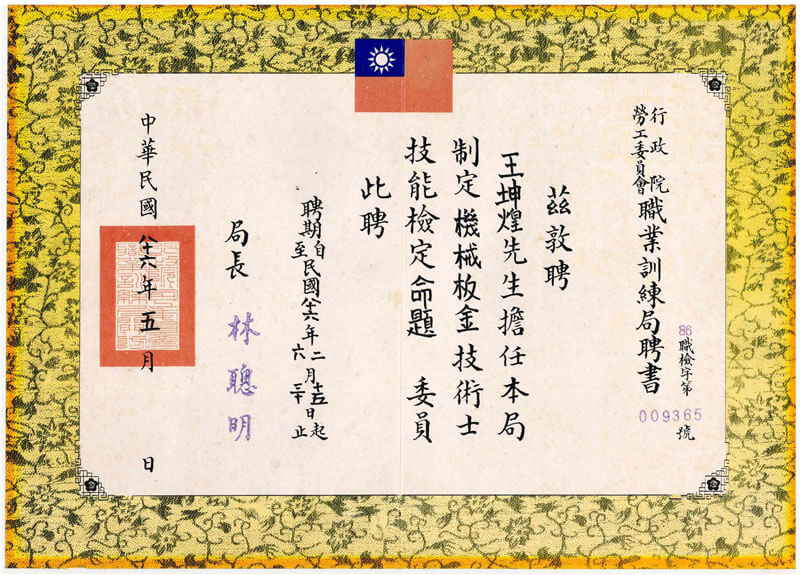 行政院
勞工委員會
職業訓練局聘書
86職檢字第009365號
茲敦聘
王坤煌先生擔任本局
制定機械板金技術士
技能檢定命題 委員
此聘
聘期自至民國八十六年二六月十五三十日起止
局長 林聰明
中華民國八十六年五月 日